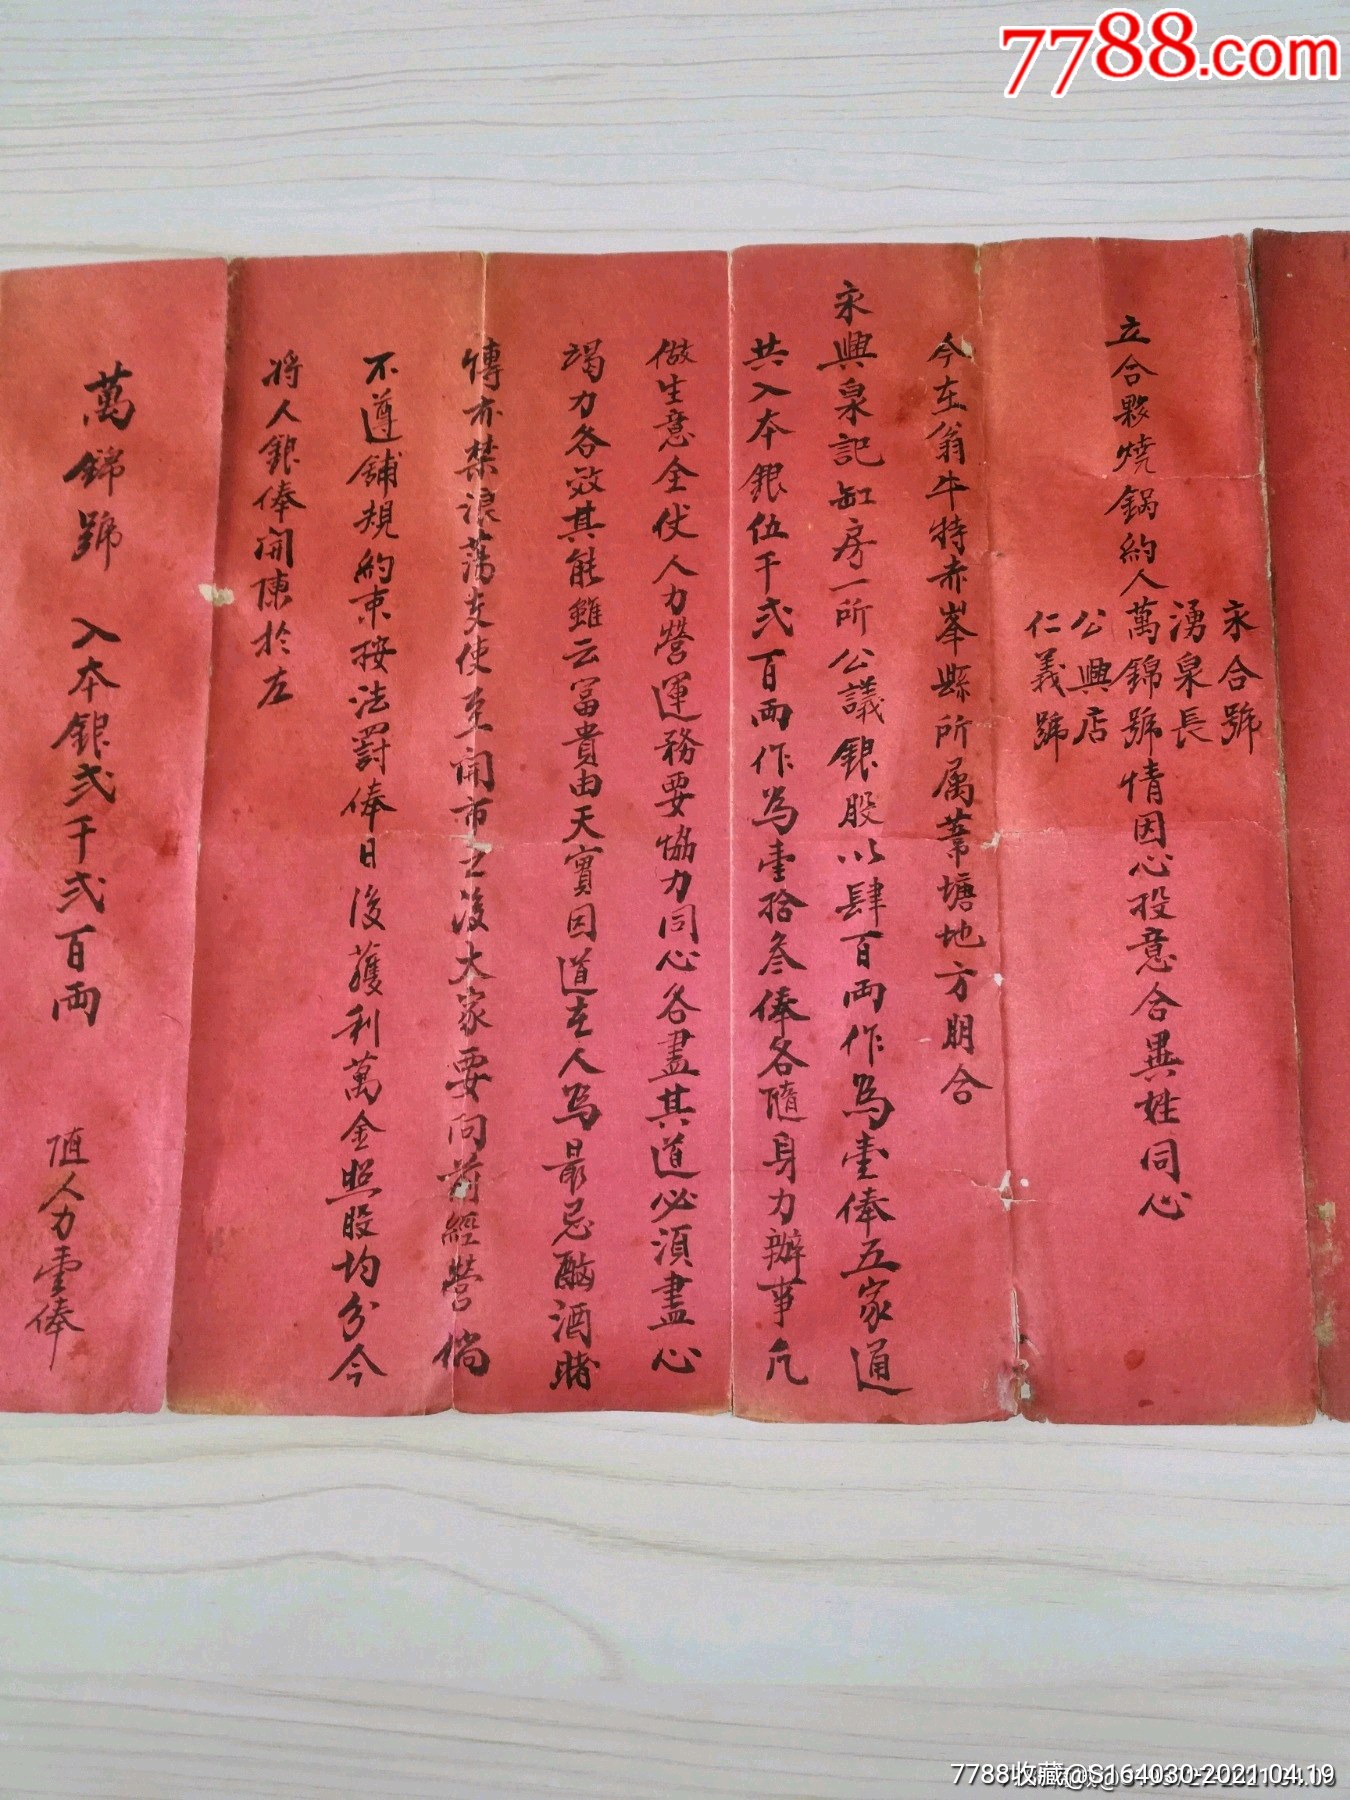 7788.com
立合夥燒鍋約人
永合號
湧泉長
萬錦號
公興店
仁義號
情因心投意合異姓同心
今在翁牛特赤峯縣所属葦塘地方朋合
永興泉記缸房一所公議銀股以肆百両作為壹俸五家通
共入本銀伍千弍百両作為壹拾叁俸各隨身力辦事凢
做生意全仗人力營運務要協力同心各盡其道必須盡心
竭力各效其能雖云富貴由天實因道在人為最忌酗酒賭
慱亦禁浪蕩支使至開市之後大家要向前經營倘
不遵舖規約束按法罰俸日後獲利萬金照股均分今
将人銀俸開陳於左
萬錦號 入本銀弍千弍百両 值人力壹俸
7788收藏@S164030-2021.04.19